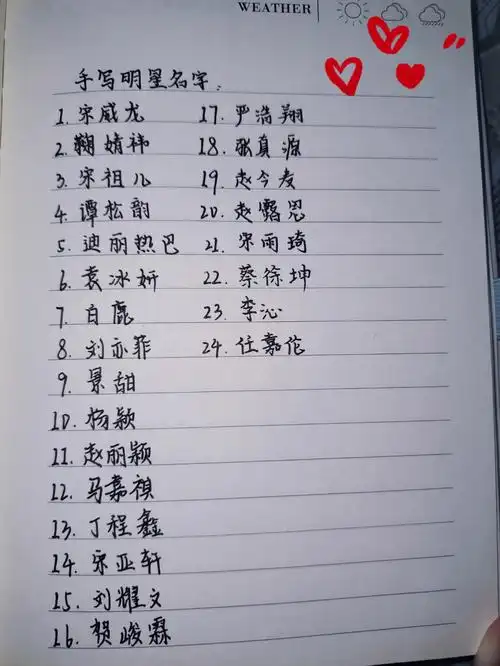 WEATHER
手写明星名字:
1. 宋威龙
2. 鞠婧祎
3. 宋祖儿
4. 谭松韵
5. 迪丽热巴
6. 袁冰妍
7. 白鹿
8. 刘亦菲
9. 景甜
10. 杨颖
11. 赵丽颖
12. 马嘉祺
13. 丁程鑫
14. 宋亚轩
15. 刘耀文
16. 贺峻霖
17. 严浩翔
18. 张真源
19. 赵今麦
20. 赵露思
21. 宋雨琦
22. 蔡徐坤
23. 李沁
24. 任嘉伦